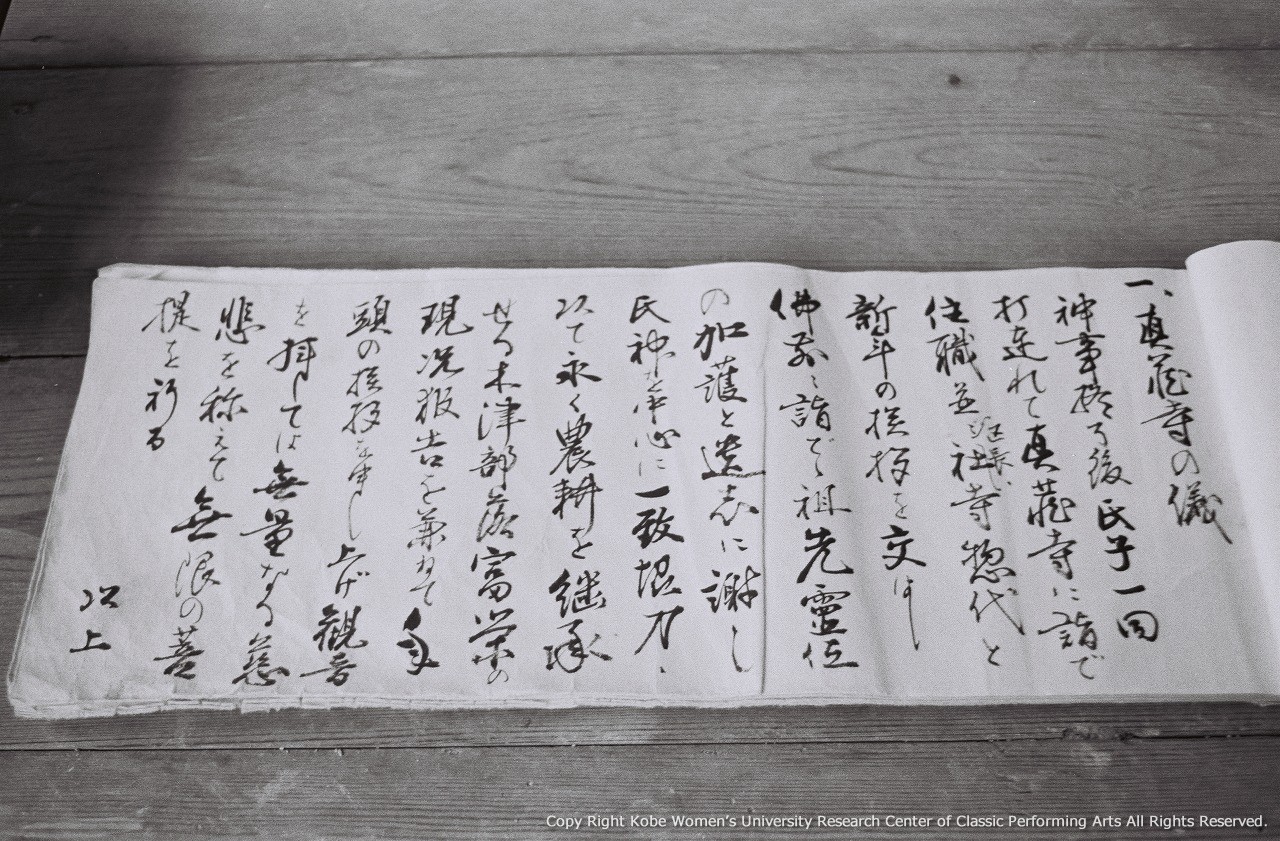 一、真蔵寺の儀
神事終了後氏子一同
打連れて真蔵寺に詣で
住職並区長、社寺惣代と
新年の挨拶を交はし
佛前に詣でゝ祖先靈位
の加護と遺志に謝し
氏神を中心に一致協力、
以て永く農耕を継承
せる木津部落富栄の
現况報告を兼ねて年
頭の挨拶を申し上げ観音
を拝しては無量なる慈
悲を称えて無限の菩
提を祈る
以上
Copy Right Kobe Women's University Research Center of Classic Performing Arts All Rights Reserved.